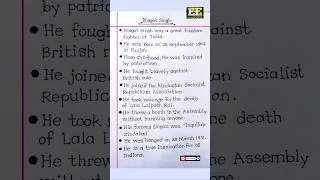 Bhagat Singh
Bhagat Singh was a great freedom
fighter of India.
He was born on 28 September 1907
in Punjab.
From childhood, He was inspired
by patriotism.
He fought bravely against
British rule.
He joined the Hindustan Socialist
Republican Association.
He took revenge for the death
of Lala Lajpat Rai.
He threw a bomb in the Assembly
without harming anyone.
His famous slogan was "Inquilab
Zindabad".
He was hanged on 23 March 1931.
He is a true inspiration for all
Indians.
by patriotism
He fought
British r
He joined
Republic
He took
of Lala
He threw
st
Socialist
on.
death
Assembly